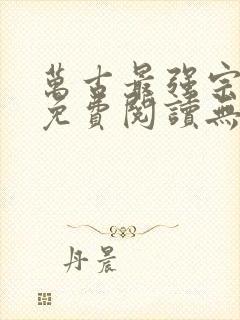 萬古最強宗
免費閱讀無
丹晨